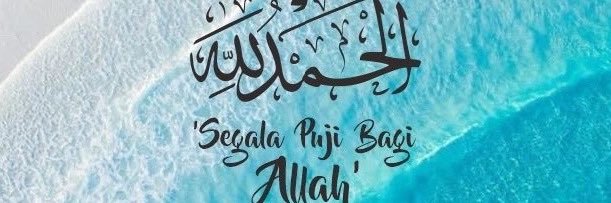 الْحَمْدُ لِلَّهِ
'Segala Puji Bagi
Allah'